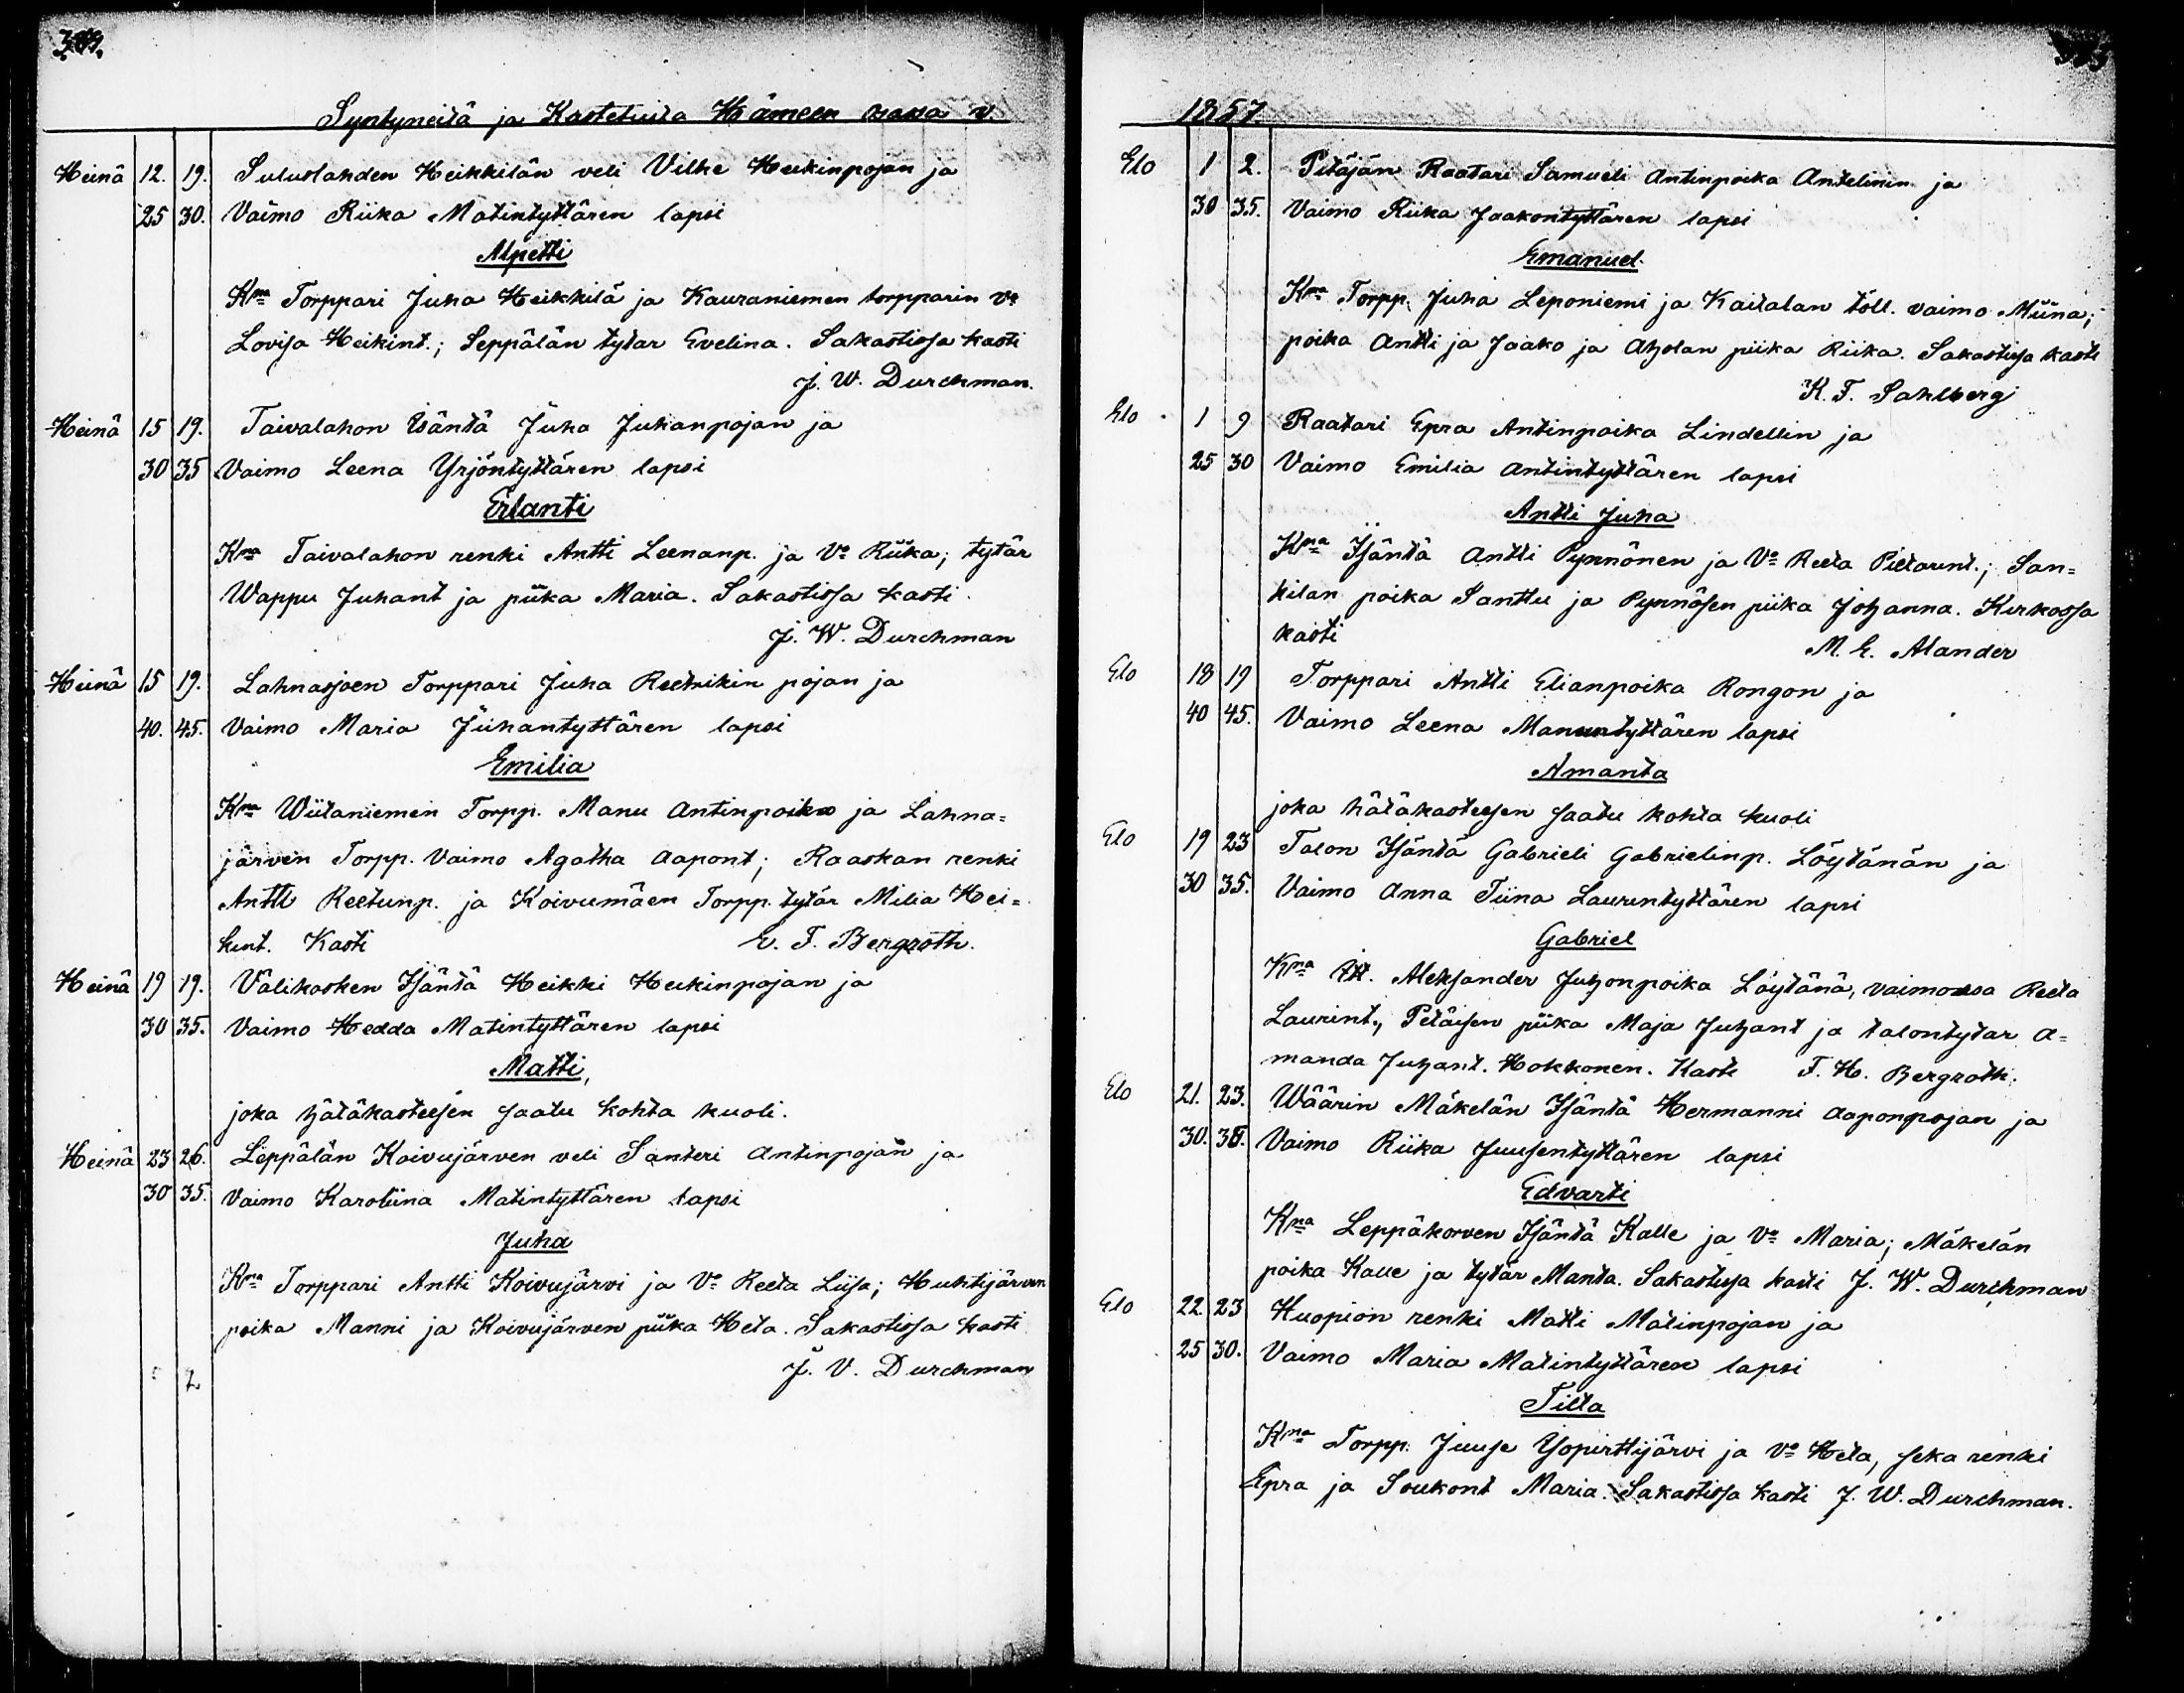 Syntyneitä ja Kastetuita Hämeen v.
Heinä 12. 19. Suluslahden Heikkilän veli Vilhe Heikinpojan ja
25 30. Vaimo Riika Matintyttären lapsi
Alpetti
Kna Torppari Juha Heikkilä ja Kauraniemen torpparin vo
Lovisa Heikint.; Seppälän tytar Evelina. Sakastissa kasti
J. W. Durchman.
Heinä 15 19. Taivalahon Isäntä Juha Juhanpojan ja
30 35 Vaimo Leena Yrjöntyttären lapsi
Erlanti
Kna Taivalahon renki Antti Leenanp. ja Vo Riika; tytär
Wappu Juhant ja piika Maria. Sakastissa kasti.
J. W. Durchman
Heinä 15 19. Lahnasjoen Torppari Juha Reetrikin pojan ja
40. 45. Vaimo Maria Juhantyttären lapsi
Emilia
Kna Wiitaniemen Torpp. Manu Antinpoika ja Lahna=
järven Torpp. Vaimo Agatha Aapont; Raaskan renki
Antti Reetunp. ja Koivumäen Torpp. tytär Milia Hei=
kint. Kasti E. F. Bergroth.
Heinä 19 19. Välikosken Isäntä Heikki Heikinpojan ja
30 35. Vaimo Hedda Matintyttären lapsi
Matti,
joka hätäkasteesen saatu kohta kuoli.
Heinä 23 26. Leppälän Koivujärven veli Santeri Antinpojan ja
30 35. Vaimo Karoliina Matintyttären lapsi
Juha
Kna Torppari Antti Koivujärvi ja Vo Reeta Liisa; Huhtijärven
poika Manni ja Koivujärven piika Heta. Sakastissa kasti
J. V. Durchman
1857.
Elo 1 2. Pitäjän Raatari Samueli Antinpoika Antelinin ja
30 35. Vaimo Riika Jaakontyttären lapsi
Emanuel.
Kna Torpp. Juha Leponiemi ja Kaitalan töll. vaimo Miina;
poika Antti ja Jaako ja Aholan piika Riika. Sakastissa kasti
K. F. Sahlberg
Elo 1 9 Raatari Epra Antinpoika Lindellin ja
25 30 Vaimo Emilia Antintyttären lapsi
Antti Juha
Kna Isäntä Antti Pynnönen ja Vo Reeta Pietarint.; San=
kilan poika Santtu ja Pynnösen piika Johanna. Kirkossa
kasti M. E. Alander
Elo 18 19 Torppari Antti Elianpoika Rongon ja
40 45. Vaimo Leena Manuntyttären lapsi
Amanta
joka hätäkasteesen saatu kohta kuoli
Elo 19 23 Talon Isäntä Gabrieli Gabrielinp. Löytänän ja
30 35. Vaimo Anna Tiina Laurintyttären lapsi
Gabriel
Kna Itt. Aleksander Juhonpoika Löytänä, vaimonsa Reeta
Laurint., Petäisen piika Maja Juhant ja talontytar A=
manda Juhant. Hokkonen. Kasti F. H. Bergroth.
Elo 21. 23. Wäärin Mäkelän Isäntä Hermanni Aaponpojan ja
30. 35. Vaimo Riika Juusentyttären lapsi
Edvarti
Kna Leppäkorven Isäntä Kalle ja Vo Maria; Mäkelän
poika Kalle ja tytär Manta. Sakastissa kasti J. W. Durchman
Elo 22. 23 Huopion renki Matti Matinpojan ja
25 30. Vaimo Maria Matintyttären lapsi
Tilta
Kna Torpp. Juuse Yopirttijärvi ja vo Heta, seka renki
Epra ja Soukont Maria. Sakastissa kasti J. W. Durchman.